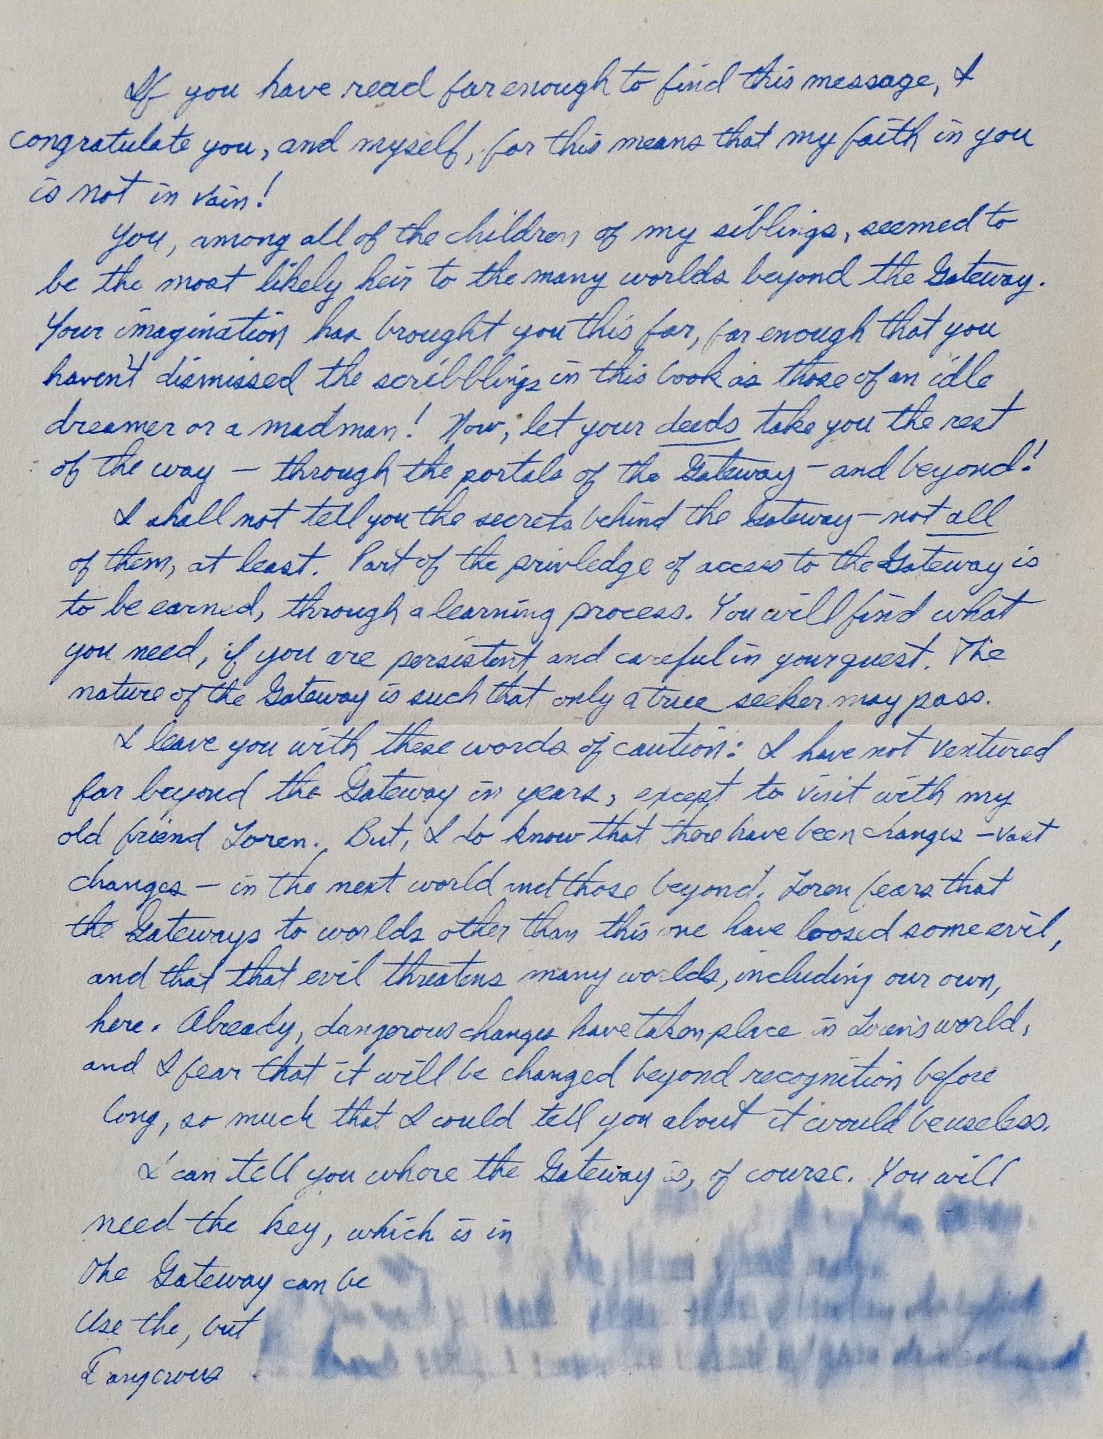 If you have read far enough to find this message, I
congratulate you, and myself, for this means that my faith in you
is not in vain!
You, among all of the children of my siblings, seemed to
be the most likely heir to the many worlds beyond the Gateway.
Your imagination has brought you this far, far enough that you
haven't dismissed the scribblings in this book as those of an idle
dreamer or a madman! Now, let your deeds take you the rest
of the way — through the portals of the Gateway — and beyond!
I shall not tell you the secrets behind the Gateway — not all
of them, at least. Part of the priviledge of access to the Gateway is
to be earned, through a learning process. You will find what
you need, if you are persistent and careful in your quest. The
nature of the Gateway is such that only a true seeker may pass.
I leave you with these words of caution: I have not ventured
far beyond the Gateway in years, except to visit with my
old friend Loren. But, I do know that there have been changes — vast
changes — in the next world and those beyond. Loren fears that
the Gateways to worlds other than this one have loosed some evil,
and that that evil threatens many worlds, including our own,
here. Already, dangerous changes have taken place in Loren's world,
and I fear that it will be changed beyond recognition before
long, so much that I could tell you about it would be useless.
I can tell you where the Gateway is, of course. You will
need the key, which is in
The Gateway can be
Use the, but
Dangerous